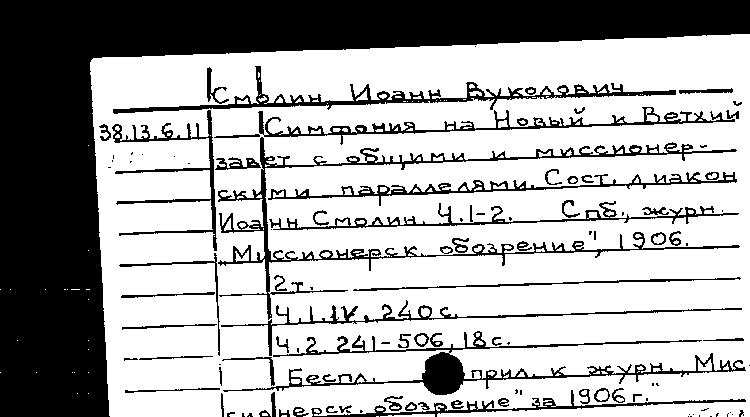 Смолин, Иоанн Вуколович
38.13.6.11 Симфония на Новый и Ветхий
завет с общими и миссионер-
скими параллелями. Сост. диакон
Иоанн Смолин. Ч.1-2. Спб., журн.
„Миссионерск. обозрение", 1906.
2т.
Ч.1. IV, 240 с.
Ч.2. 241-506, 18 с.
„Беспл. прил. к журн. „Мис-
сионерск. обозрение" за 1906 г."